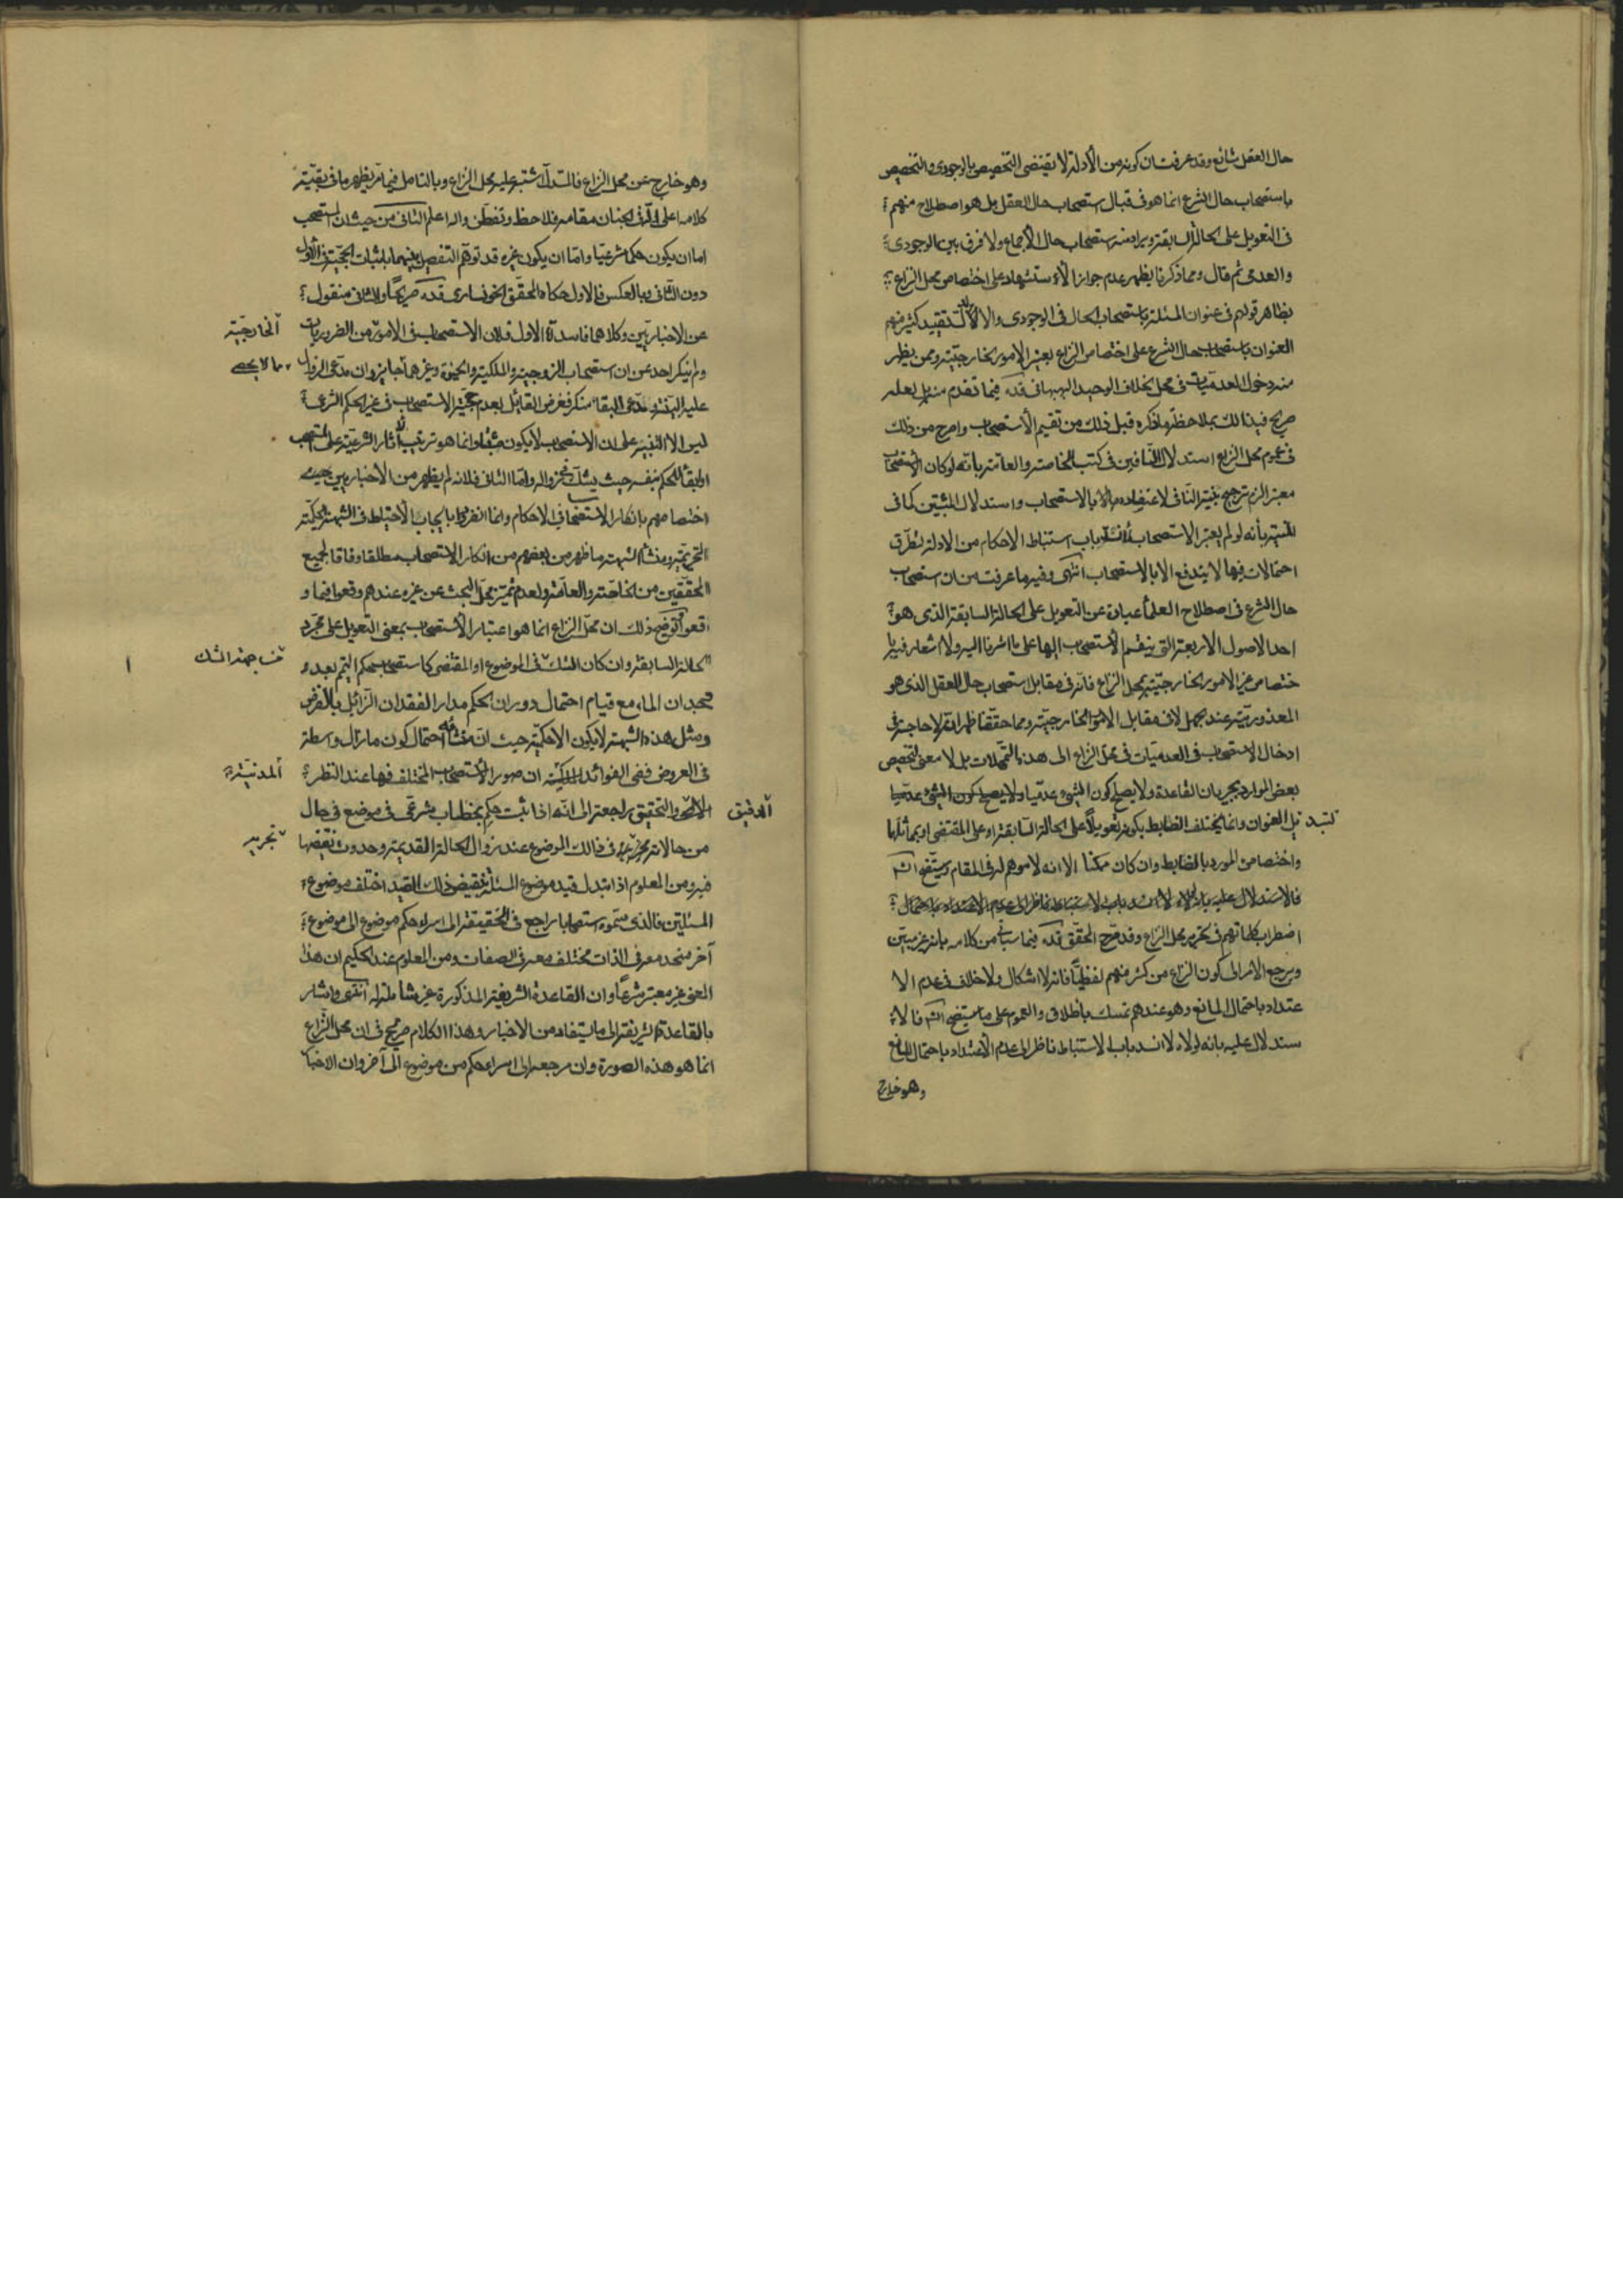 حال العقل شائع وقد عرفت ان كونه من الأدلة لا يقتضى التخصيص بالوجودى والتخصيص
باستصحاب حال الشرع انما هو فى قبال استصحاب حال العقل بل هو اصطلاح منهم
فى التعويل على الحالة السابقة ويرادفه استصحاب حال الأجماع ولا فرق بين الوجودى
والعدمى ثم قال ومما ذكرنا يظهر عدم جواز الأستشهاد على اختصاص محل النزاع
بظاهر قولهم فى عنوان المسئلة باستصحاب الحال فى الوجودى والا لدل تقييد كثير منهم
العنوان باستصحاب حال الشرع على اختصاص النزاع بغير الامور الخارجية وممن يظهر
منه دخول العدميات فى محل الخلاف الوحيد البهبهانى قده فيما تقدم منه بل لعله
صريح فى ذلك بملاحظة ما ذكره قبل ذلك من تقسيم الأستصحاب واصرح من ذلك
فى عموم محل النزاع استدلال النافين فى كتب الخاصة والعامة بأنه لو كان الأستصحاب
معتبرا لزم ترجيح بينة النافى لاعتضاده بالاستصحاب واستدلال المثبتين كما فى
المنية بأنه لو لم يعتبر الاستصحاب لانسد باب استنباط الاحكام من الادلة لتطرق
احتمالات فيها لا يندفع الا بالاستصحاب انتهى وفيه ما عرفت من ان استصحاب
حال الشرع فى اصطلاح العلمأ عبارة عن التعويل على الحالة السابقة الذى هو
احد الاصول الاربعة التى ينقسم الأستصحاب إليها على ما اشرنا اليه ولا اشعار فيه با
ختصاص غير الامور الخارجية بمحل النزاع فانه فى مقابل استصحاب حال العقل الذى هو
المعذورية عند الجهل لا فى مقابل الامور الخارجية ومما حققنا ظهر انه لا حاجة فى
ادخال الاستصحاب فى العدميات فى محل النزاع الى هذه التمحلات بل لا معنى لتخصيص
بعض الموارد بجريان القاعدة ولا يصلح كون الشىء عدميا
لتبدل العنوان وانما يختلف الضابط بكونه تعويلاً على الحالة السابقة او على المقتضى او بمماثلهما
واختصاص المورد بالضابط وان كان ممكنا الا انه لا موهم له فى المقام
فالاستدلال عليه بانه لولاه لانسد باب الاستنباط ناظر الى عدم الاعتداد باحتمال
اضطراب كلماتهم فى تحرير محل النزاع وقد صرح المحقق قده فيما سيأتى من كلامه بانه
ويرجع الامر الى كون النزاع من كثير منهم لفظيّاً فانه لا اشكال ولا خلاف فى عدم الا
عتداد باحتمال المانع وهو عندهم تمسك باطلاق والعموم على ما سيتضح فالا
ستدلال عليه بانه لولاه لانسد باب الاستنباط ناظر الى عدم الأعتداد باحتمال المانع
وهو خارج
وهو خارج عن محل النزاع فالمستدل اشتبه عليه محل النزاع وبالتامل فيما مر يظهر ما فى بقية
كلامه اعلى الله فى الجنان مقامه فلا حظ وتفطن والله اعلم الثانى من حيث ان المستصحب
اما ان يكون حكما شرعيّا وامّا ان يكون غيره قد توهّم التفصيل بينهما باثبات الحجّية فى الأول
دون الثّانى وبالعكس فالاول حكاه المحقق الخونسارى قده صريحاً والثانى منقول
عن الاخباريين وكلاهما فاسد امّا الاول فلان الاستصحاب فى الامور من الضروريات
الخارجيّة
ولم ينكر احد عن ان استصحاب الزوجية والملكية والحيوة وغيرها جايز وان مدّعى الزوال
مما لا يحصى
عليه البيّنة ومدّعى البقاء منكر فغرض القائل بعدم حجية الاستصحاب فى غير الحكم الشرعى
ليس الا التنبيه على ان الاستصحاب لا يكون مثبتا وانما هو ترتيب آثار الشرعية على المستصحب
او ابقاء الحكم بنفسه حيث يشك فى زواله وامّا الثانى فلانه لم يظهر من الأخباريين
اختصاصهم بانكار الاستصحاب فى الاحكام وانما انفردوا بايجاب الأحتياط فى الشبهة الحكمية
التحريمية ومنشأ الشبهة ما ظهر من بعضهم من انكار الاستصحاب مطلقا وفاقا لجميع
المحققين من الخاصّة والعامّة ولعدم تميز محل البحث عن غيره عندهم وقعوا فيما و
قعوا توضيح ذلك ان محل النزاع انما هو اعتبار الأستصحاب بمعنى التعويل على مجرّد
الحالة السابقة وان كان الشك فى الموضوع او المقتضى كاستصحاب حكم التيمم بعد و
من جهة الشك
جدان الماء مع قيام احتمال دوران الحكم مدار الفقدان الزّائل بالفرض
ومثل هذه الشبهة لا يكون الا حكمية حيث ان منشأه احتمال كون ما زال واسطة
فى العروض ففى الفوائد ان صور الأستصحاب المختلف فيها عند النظر
المدنيّة
الدقيق
والتحقيق راجعة الى انّه اذا ثبت حكم بخطاب شرعىّ فى موضع فى حال
من حالاته نجريه فى ذلك الموضوع عند زوال الحالة القديمة وحدوث نقيضها
نجريه
فيه ومن المعلوم اذا تبدل قيد موضوع المسئلة بنقيض ذلك القيد اختلف موضوع
المسئلتين فالذى سمّوه استصحابا راجع فى الحقيقة الى اسراء حكم موضوع الى موضوع
آخر متحد معه فى الذات مختلف معه فى الصفات ومن المعلوم عند الحكيم ان هذا
المعنى غير معتبر شرعاً وان القاعدة الشريفة المذكورة غير شاملة له انتهى واشار
بالقاعدة الشريفة الى ما يستفاد من الاخبار وهذا الكلام صريح فى ان محل النزاع
انما هو هذه الصورة وان مرجعه الى اسراء حكم من موضوع الى آخر وان الاخبا